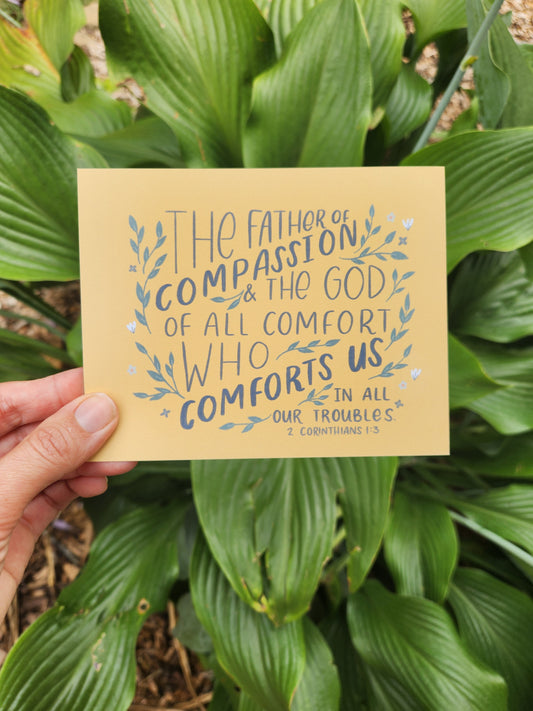 THE FATHER OF
COMPASSION
& THE GOD
OF ALL COMFORT
WHO
COMFORTS US
IN ALL
OUR TROUBLES.
2 CORINTHIANS 1:3